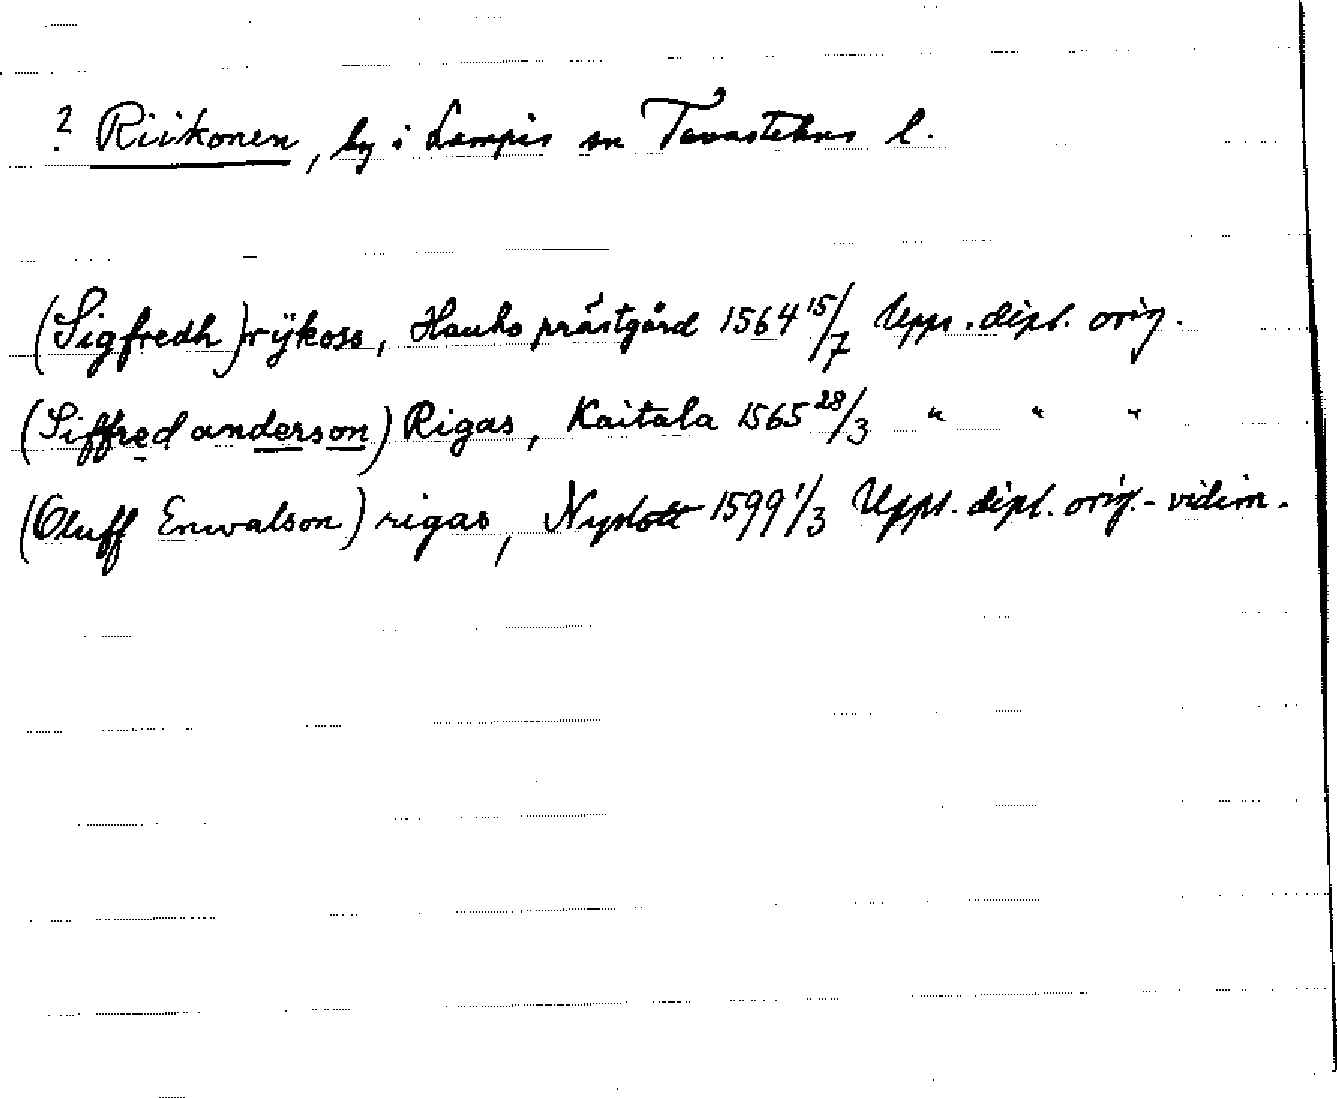 ? Riikonen, by i Lampis sn Tavastehus l.
(Sigfredh) rÿkoss, Hauho prästgård 1564 15/7 Upps. dipl. orig.
(Siffred anderson) Rigas, Kaitala 1565 28/3 " " "
(Oluff Enwalson) rigas, Nyslott 1599 1/3 Upps. dipl. orig.-vidim.